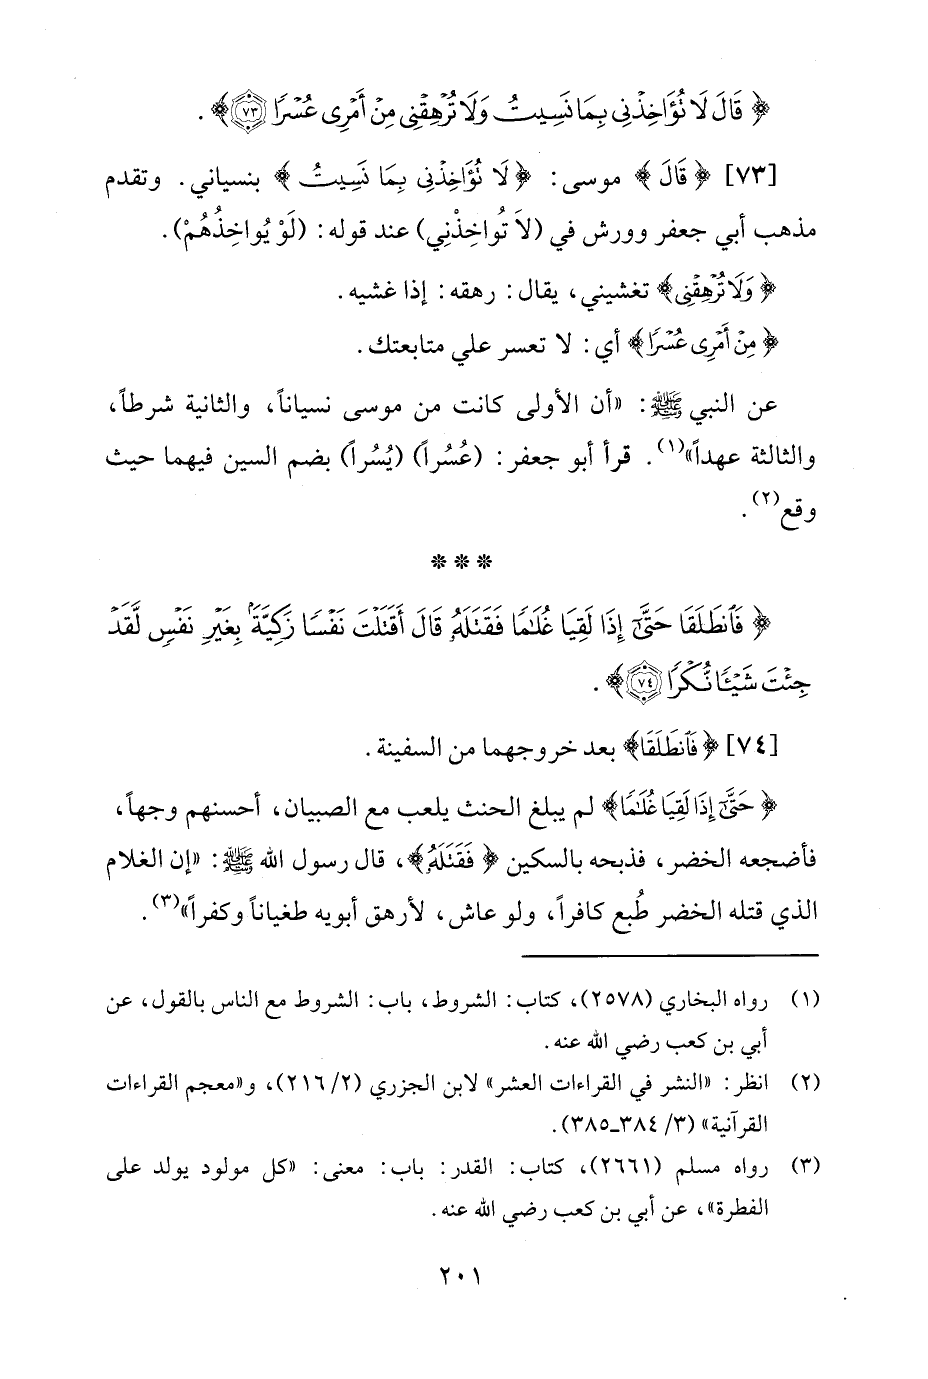 ﴿ قَالَ لَا تُؤَاخِذْنِى بِمَا نَسِيتُ وَلَا تُرْهِقْنِى مِنْ أَمْرِى عُسْرًا ٧٣ ﴾ .
[٧٣] ﴿ قَالَ ﴾ موسى : ﴿ لَا تُؤَاخِذْنِى بِمَا نَسِيتُ ﴾ بنسياني . وتقدم
مذهب أبي جعفر وورش في (لاَ تُواخِذْنِي) عند قوله : (لَوْ يُواخِذُهُمْ).
﴿ وَلَا تُرْهِقْنِى ﴾ تغشيني ، يقال : رهقه : إذا غشيه .
﴿ مِنْ أَمْرِى عُسْرًا ﴾ أي : لا تعسر علي متابعتك .
عن النبي ﷺ : «أن الأولى كانت من موسى نسياناً، والثانية شرطاً،
والثالثة عهداً»(١). قرأ أبو جعفر : (عُسُراً) (يُسُراً) بضم السين فيهما حيث
وقع(٢).
* * *
﴿ فَٱنطَلَقَا حَتَّىٰٓ إِذَا لَقِيَا غُلَٰمًا فَقَتَلَهُۥ قَالَ أَقَتَلْتَ نَفْسًا زَكِيَّةَۢ بِغَيْرِ نَفْسٍ لَّقَدْ
جِئْتَ شَيْـًٔا نُّكْرًا ٧٤ ﴾ .
[٧٤] ﴿ فَٱنطَلَقَا ﴾ بعد خروجهما من السفينة .
﴿ حَتَّىٰٓ إِذَا لَقِيَا غُلَٰمًا ﴾ لم يبلغ الحنث يلعب مع الصبيان، أحسنهم وجهاً،
فأضجعه الخضر ، فذبحه بالسكين ﴿ فَقَتَلَهُۥ ﴾، قال رسول الله ﷺ : «إن الغلام
الذي قتله الخضر طُبع كافراً، ولو عاش ، لأرهق أبويه طغياناً وكفراً»(٣).
(١) رواه البخاري (٢٥٧٨)، كتاب : الشروط، باب : الشروط مع الناس بالقول، عن
أبي بن كعب رضي الله عنه .
(٢) انظر : «النشر في القراءات العشر» لابن الجزري (٢/ ٢١٦)، و«معجم القراءات
القرآنية» (٣/ ٣٨٤ـ٣٨٥).
(٣) رواه مسلم (٢٦٦١)، كتاب : القدر : باب : معنى : «كل مولود يولد على
الفطرة»، عن أبي بن كعب رضي الله عنه .
٢٠١